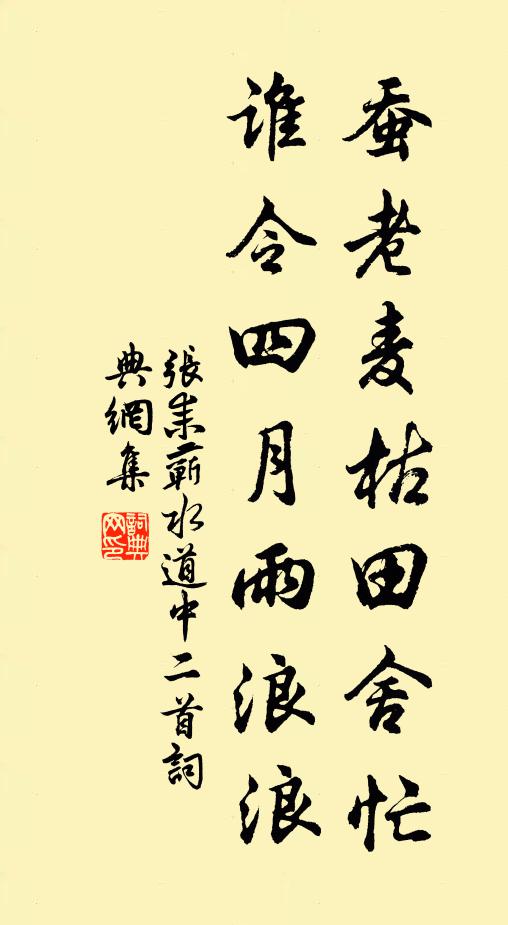 蚕老麦枯田舍忙
谁令四月雨浪浪
張耒蘄水道中二首詞
典網集
詞典
网印